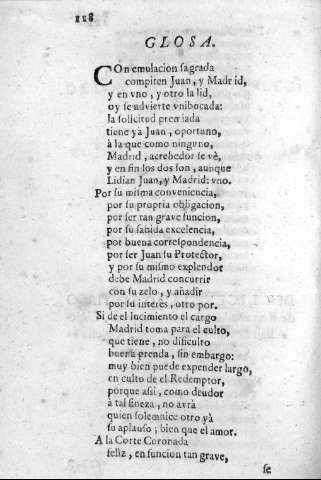 118
GLOSA.
COn emulacion sagrada
compiten Juan, y Madrid,
y en vno, y otro la lid,
oy se advierte vnibocada:
la solicitud premiada
tiene yà Juan, oportuno,
à la que como ninguno,
Madrid, acrehedor se vè,
y en fin los dos son, aunque
Lidian Juan, y Madrid: vno.
Por su misma conveniencia,
por su propria obligacion,
por ser tan grave funcion,
por su sabida excelencia,
por buena correspondencia,
por ser Juan su Protector,
y por su mismo explendor
debe Madrid concurrir
con su zelo, y añadir
por su interès, otro por.
Si de el lucimiento el cargo
Madrid toma para el culto,
que tiene, no dificulto
buena prenda, sin embargo:
muy bien puede expender largo,
en culto de el Redemptor,
porque assi, como deudor
à tal fineza, no avrà
quien solemnice otro yà
su aplauso; bien que el amor.
A la Corte Coronada
feliz, en funcion tan grave,
se